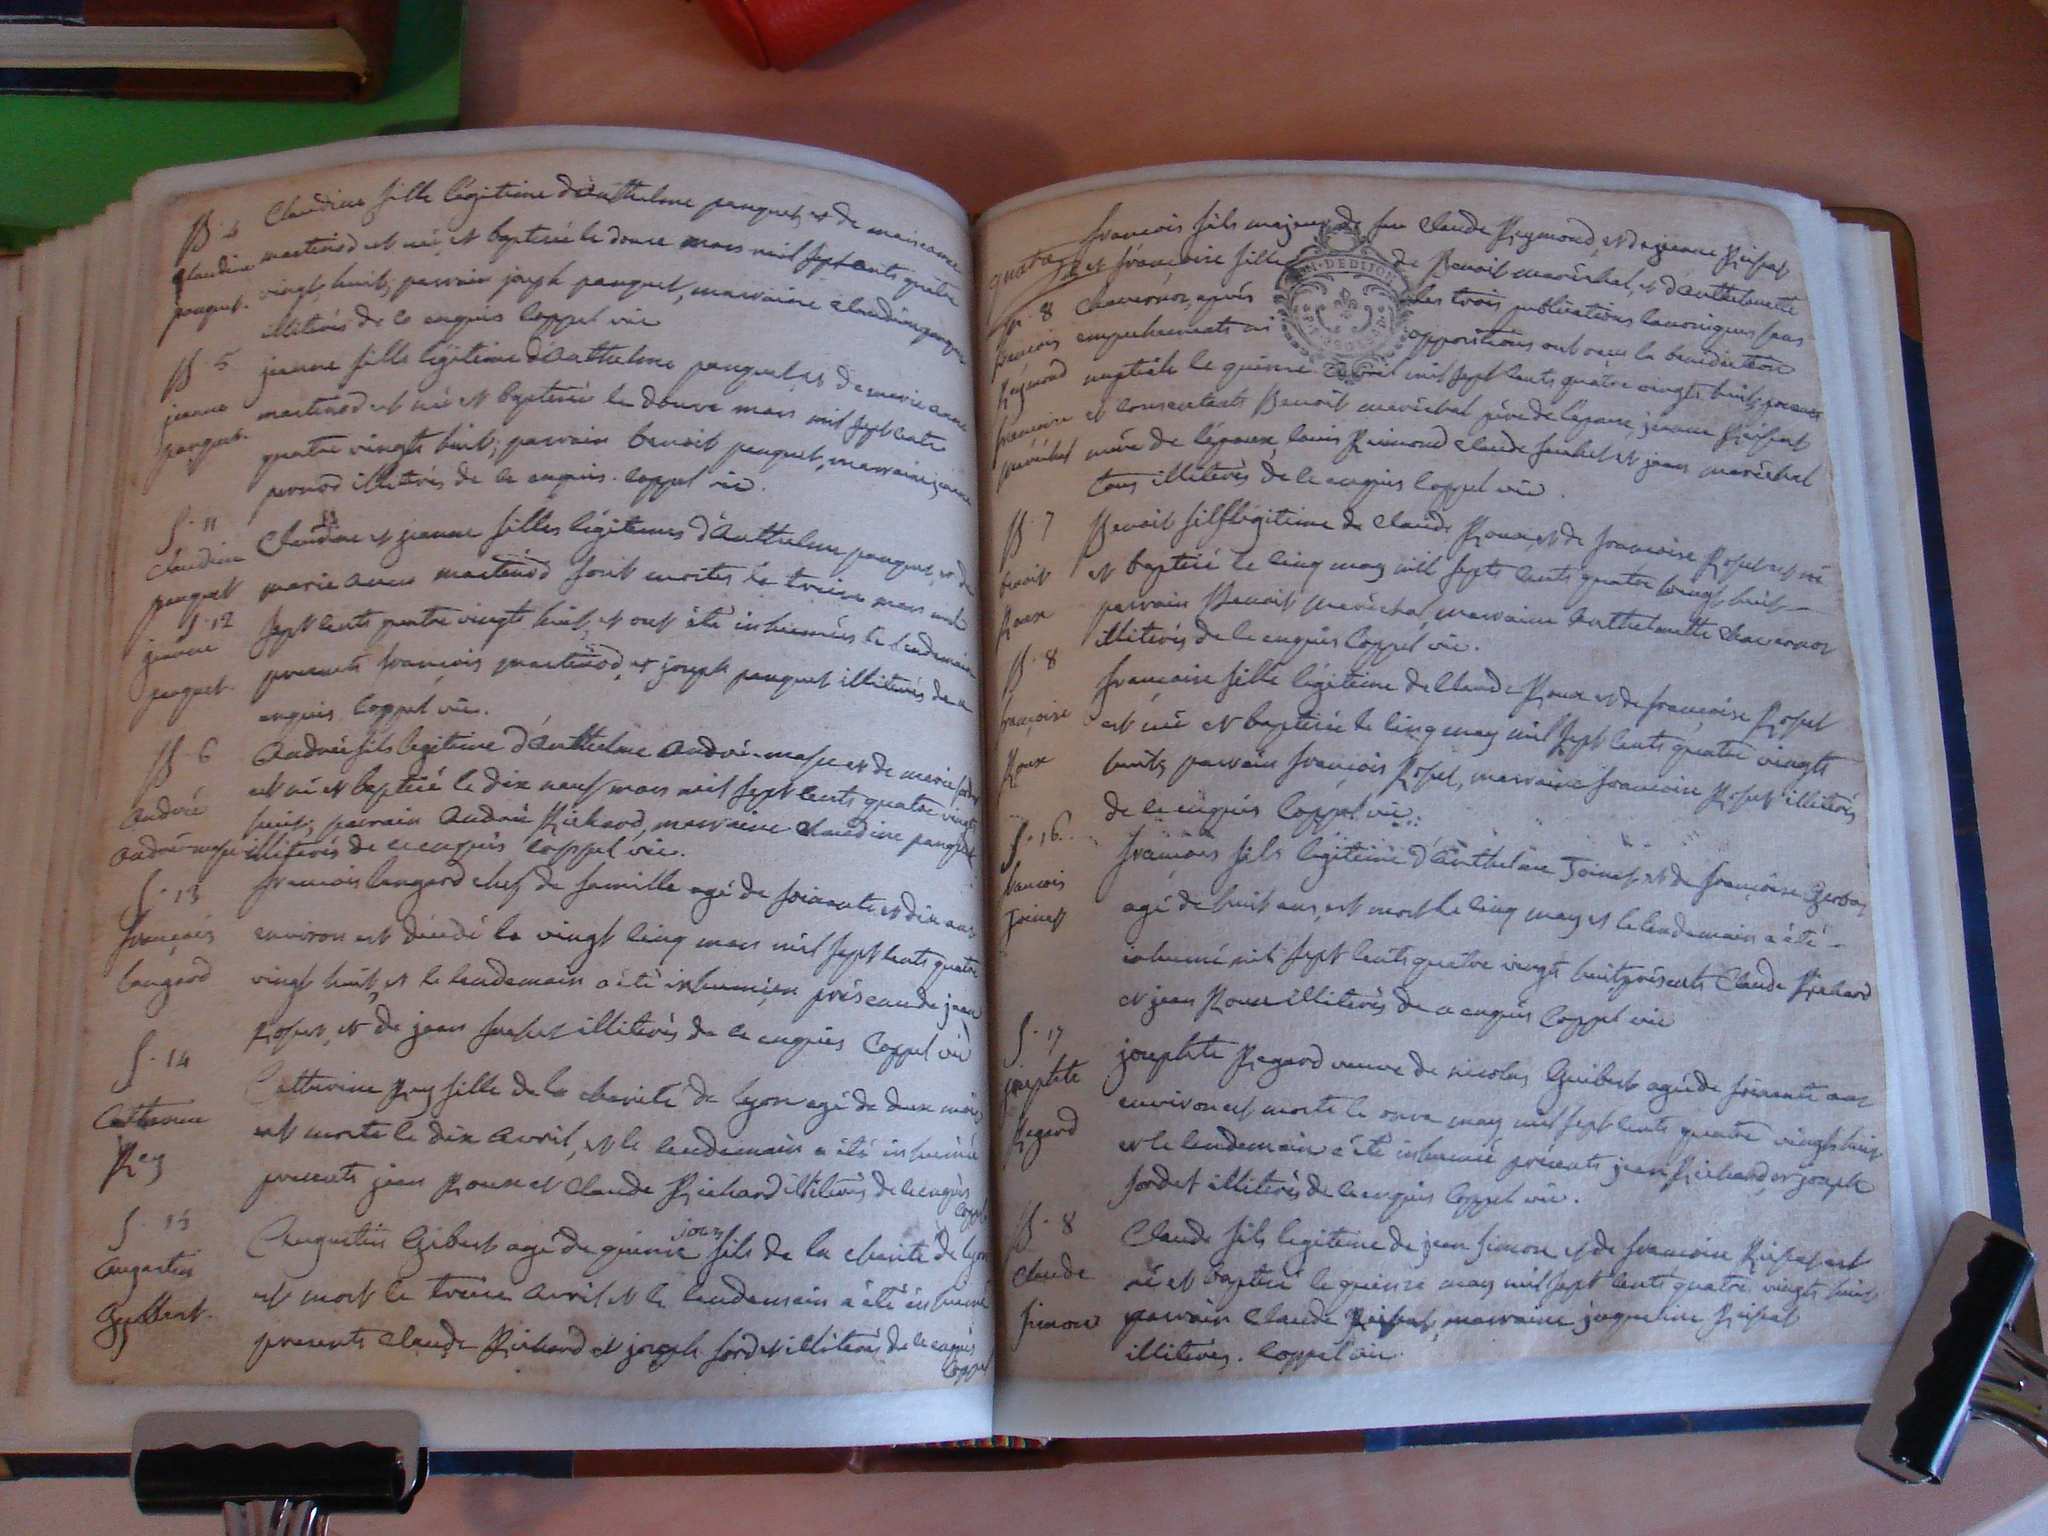 B. 4
Claudine
panguet.
Claudine fille légitime d'anthelme panguet, et de marie anne
martinod est née et baptisée le douze mars mil sept cents quatre
vingt huit, parrain joseph panguet, marraine claudine panguet
illiterés de ce enquis Coppel vic
B. 5
jeanne
panguet.
jeanne fille légitime d'Anthelme panguet, et de marie anne
martinod est née et baptisée le douze mars mil sept cents
quatre vingts huit; parrain benoit panguet, marraine jeanne
pernod illiterés de ce enquis. Coppel vic.
S. 11
Claudine
panguet
S. 12
jeanne
panguet.
Claudine et jeanne filles légitimes d'Anthelme panguet, et de
marie anne martinod sont mortes le treize mars mil
sept cents quatre vingts huit, et ont été inhumées le lendemain
presents françois martinod, et joseph panguet illiterés de ce
enquis Coppel vic.
B. 6
André
André-masse
André fils legitime d'Anthelme André-masse et de marie fordet
est né et baptisé le dix neuf mars mil sept cents quatre vingts
huit; parrain André Richard, marraine claudine panguet
illiterés de ce enquis Coppel vic.
S. 13
françois
langard
francois langard chef de famille agé de soixante et dix ans
environ est décédé le vingt cinq mars mil sept cents quatre
vingt huit, et le lendemain a été inhumé en présence de jean
Rosset, et de jean illiterés de ce enquis Coppel vic
S. 14
Catherine
Rey
Catherine Rey fille de la charité de lyon agé de deux mois
est morte le dix avril, et le lendemain a été inhumée
presents jean Roux et Claude Richard illiterés de ce enquis
Coppel
S. 15
Augustin
Gybbert.
Augustin Gibert agé de quinze jours fils de la charité de lyon
est mort le treize avril et le lendemain a été inhumé
presents Claude Richard et joseph fordet illiterés de ce enquis
Coppel
francois fils majeur de feu Claude Reymond, et de jeanne Rispat
et françoise fille de Benoit maréchal, et d'Anthelmette
Chavernoz, après les trois publications canoniques sans
empechements ni oppositions ont reçu la benediction
nuptiale le quinze avril mil sept cents quatre vingts huit, presents
et consentants Benoit maréchal père de l'epouse, jeanne Rispat
mère de l'époux, louis Reimond claude et jean maréchal
tous illiterés de ce enquis Coppel vic.
m. 8
francois
Reymond
francoise
maréchal
GEN. DE DIJON
B. 7
benoit
Roux
Benoit fils légitime de claude Roux, et de françoise Rosset est né
et baptisé le cinq may mil sept cents quatre vingt huit
parrain Benoit Maréchal, marraine Anthelmette Chavernoz
illiterés de ce enquis Coppel vic.
B. 8
françoise
Roux
françoise fille légitime de Claude Roux et de françoise Rosset
est née et baptisée le cinq may mil sept cents quatre vingts
huit, parrain françois Rosset, marraine francoise Rosset illiterés
de ce enquis Coppel vic.
S. 16.
francois
joinet
françois fils légitime d'Anthelme joinet, et de françoise Gerbaz
agé de huit ans, est mort le cinq may et le lendemain a été
inhumé mil sept cents quatre vingts huit, présents Claude Richard
et jean Roux illiterés de ce enquis Coppel vic
S. 17
josephte
Regard
josephte Regard veuve de nicolas Guibert agée de soixante ans
environ est morte le onze may mil sept cents quatre vingts huit
et le lendemain a été inhumée présents jean Richard, et joseph
fordet illiterés de ce enquis Coppel vic.
B. 8
Claude
Simon
Claude fils legitime de jean Simon et de francoise Rispat est
né et baptisé le quinze may mil sept cents quatre vingts huit
parrain Claude Rispat, marraine jaqueline Rispat
illiterés. Coppel vic.